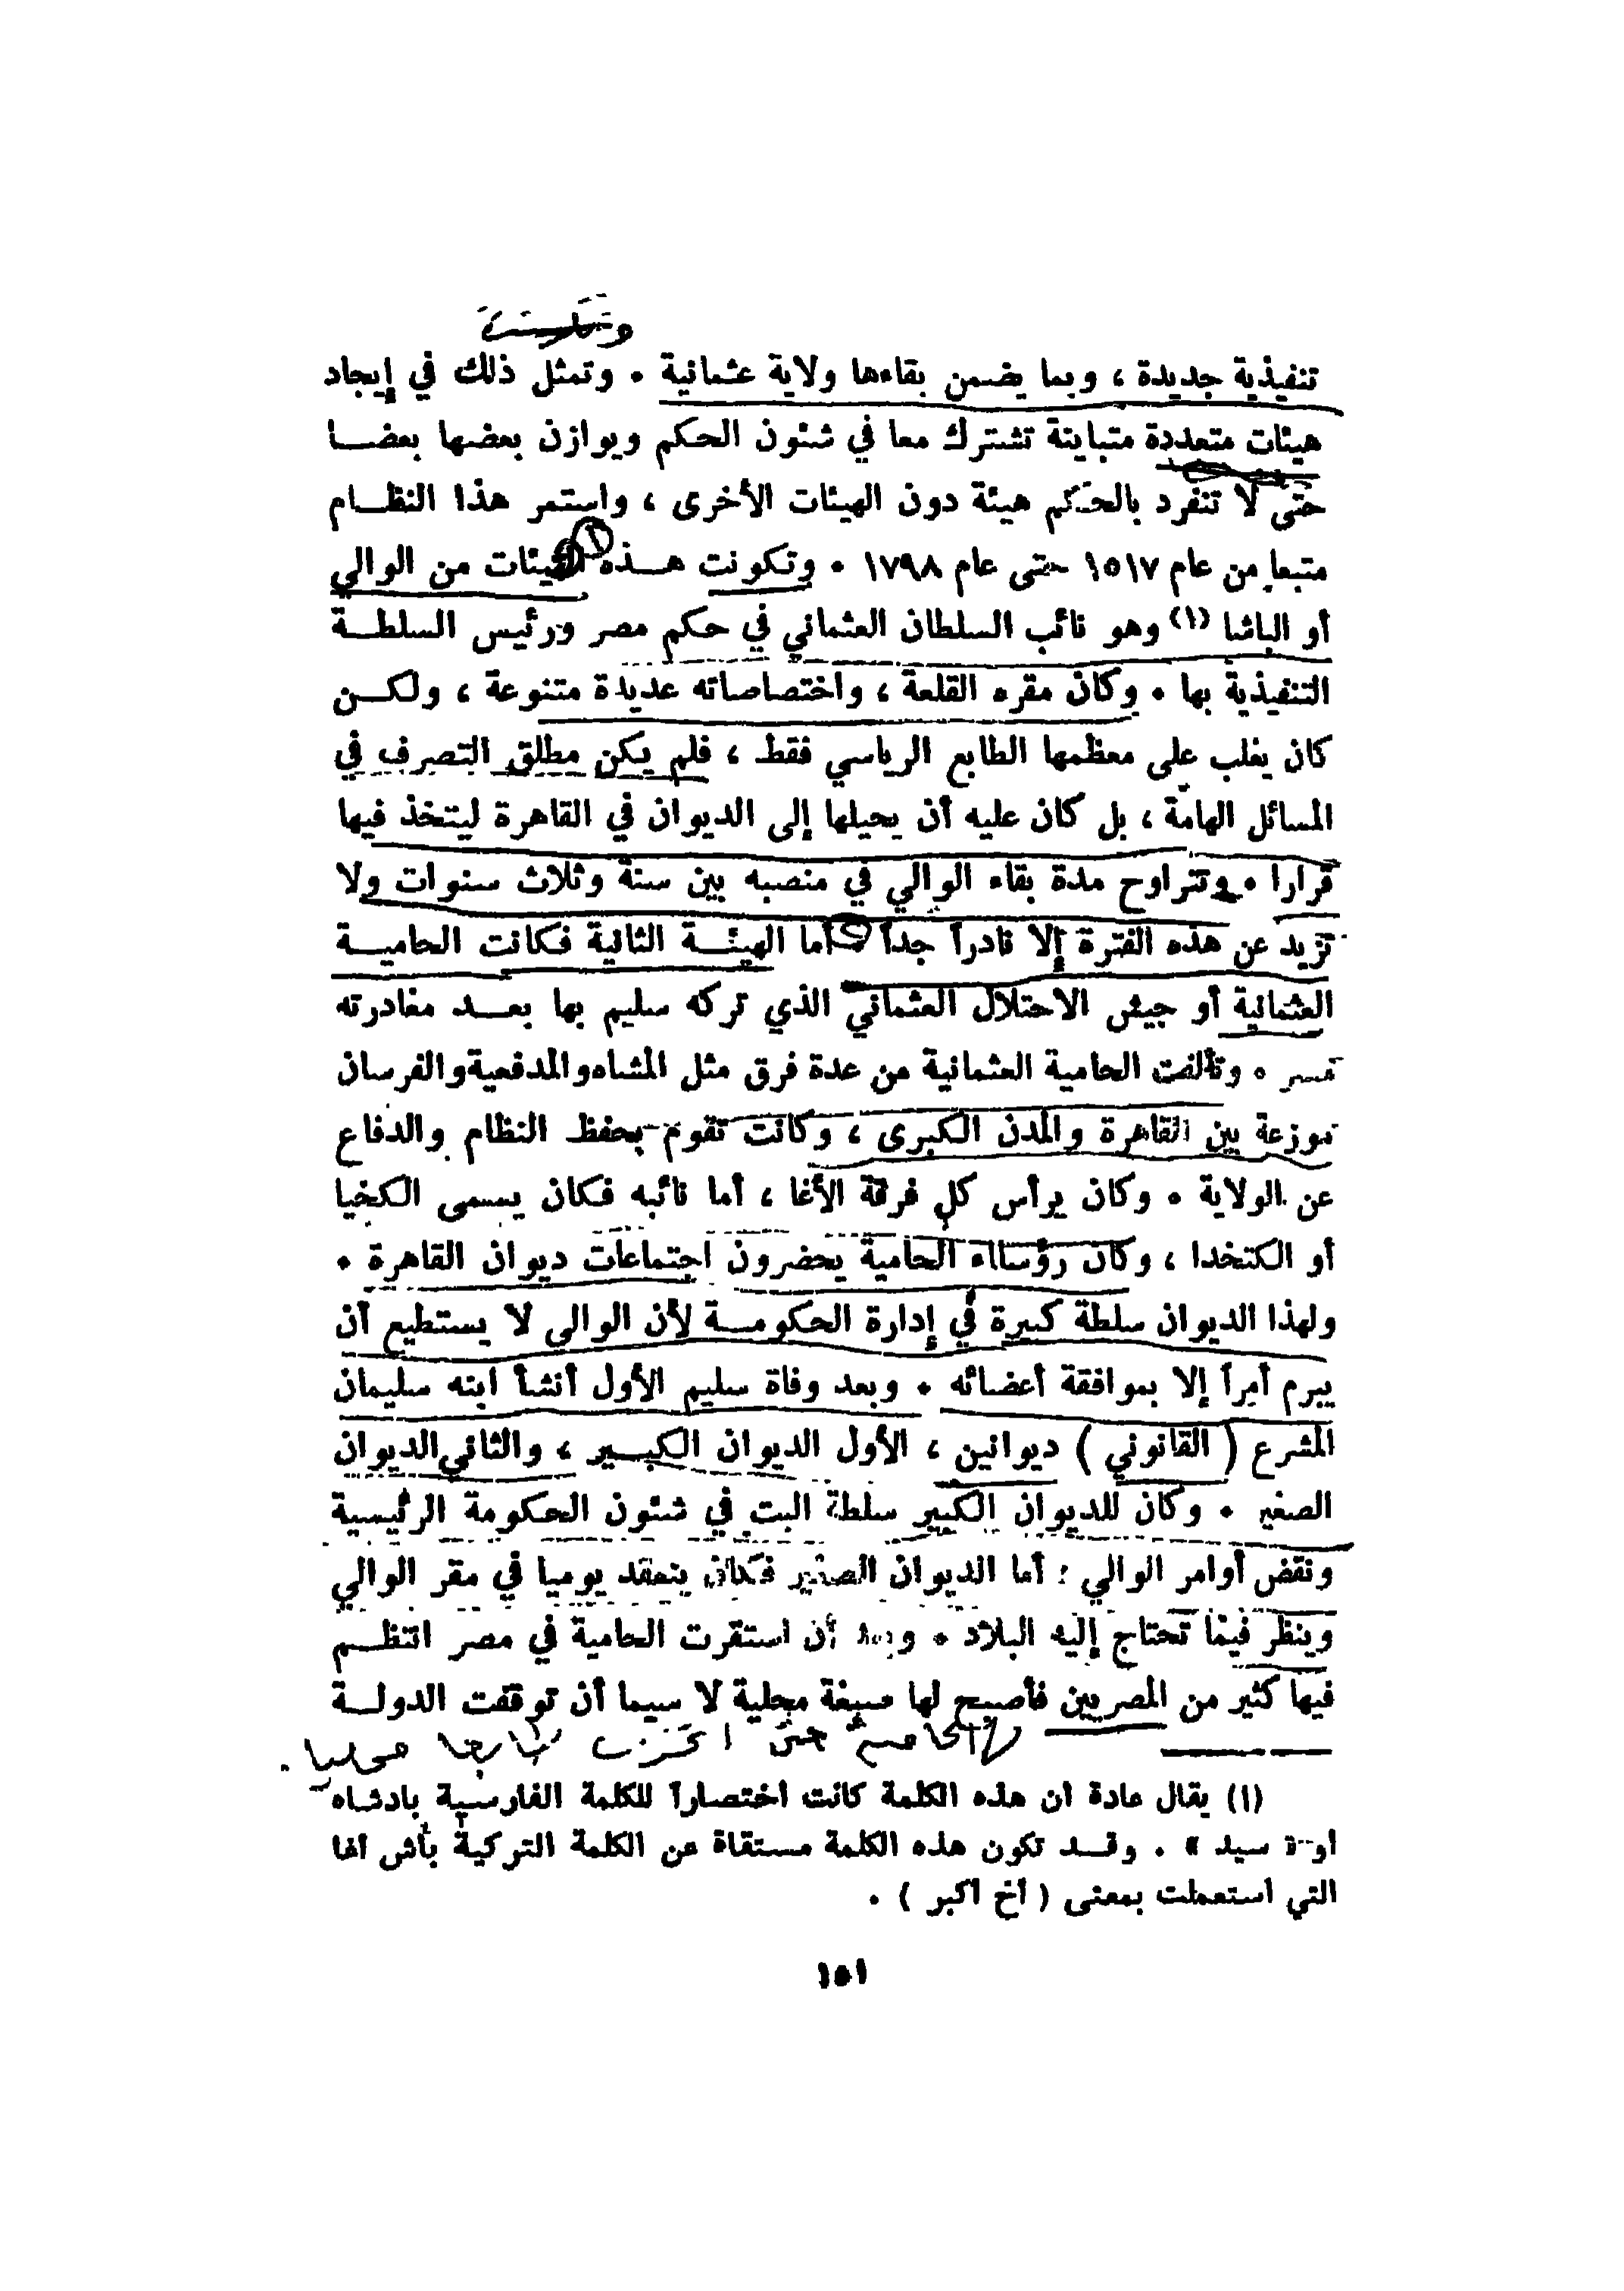 تنفيذية جديدة ، وبما يضمن بقاءها ولاية عثمانية . وتمثل ذلك في إيجاد
هيئات متعددة متباينة تشترك معا في شئون الحكم ويوازن بعضها بعضـا
حتى لا تنفرد بالحكم هيئة دون الهيئات الأخرى ، واستمر هذا النظـام
متبعا من عام ١٥١٧ حتى عام ١٧٩٨ . وتكونت هـذه الهيئات من الوالي
أو الباشا (١) وهو نائب السلطان العثماني في حكم مصر ورئيس السلطـة
التنفيذية بها . وكان مقره القلعة ، واختصاصاته عديدة متنوعة ، ولكـن
كان يغلب على معظمها الطابع الرياسي فقط ، فلم يكن مطلق التصرف في
المسائل الهامة ، بل كان عليه أن يحيلها إلى الديوان في القاهرة ليتخذ فيها
قرارا . وتتراوح مدة بقاء الوالي في منصبه بين سنة وثلاث سنوات ولا
تزيد عن هذه الفترة إلا نادراً جداً . أما الهيئـة الثانية فكانت الحاميـة
العثمانية أو جيش الاحتلال العثماني الذي تركه سليم بها بعـد مغادرته
مصر . وتألفت الحامية العثمانية من عدة فرق مثل المشاه والمدفعية والفرسان
موزعة بين القاهرة والمدن الكبرى ، وكانت تقوم بحفظ النظام والدفاع
عن الولاية . وكان يرأس كل فرقة الأغا ، أما نائبه فكان يسمى الكخيا
أو الكتخدا ، وكان رؤساء الحامية يحضرون اجتماعات ديوان القاهرة .
ولهذا الديوان سلطة كبيرة في إدارة الحكومـة لأن الوالى لا يستطيع أن
يبرم أمراً إلا بموافقة أعضائه . وبعد وفاة سليم الأول أنشأ ابنه سليمان
المشرع ( القانوني ) ديوانين ، الأول الديوان الكبـير ، والثاني الديوان
الصغير . وكان للديوان الكبير سلطة البت في شئون الحكومة الرئيسية
ونقض أوامر الوالي ؛ أما الديوان الصغير فكان ينعقد يوميا في مقر الوالي
وينظر فيما تحتاج إليه البلاد . وبعد أن استقرت الحامية في مصر انتظـم
فيها كثير من المصريين فأصبح لها صبغة محلية لا سيما أن توقفت الدولـة
(١) يقال عادة أن هذه الكلمة كانت اختصاراً للكلمة الفارسية بادشاه
أو « سيد » . وقـد تكون هذه الكلمة مستقاة عن الكلمة التركية بأش أغا
التي استعملت بمعنى ( أخ أكبر ) .
١٥١